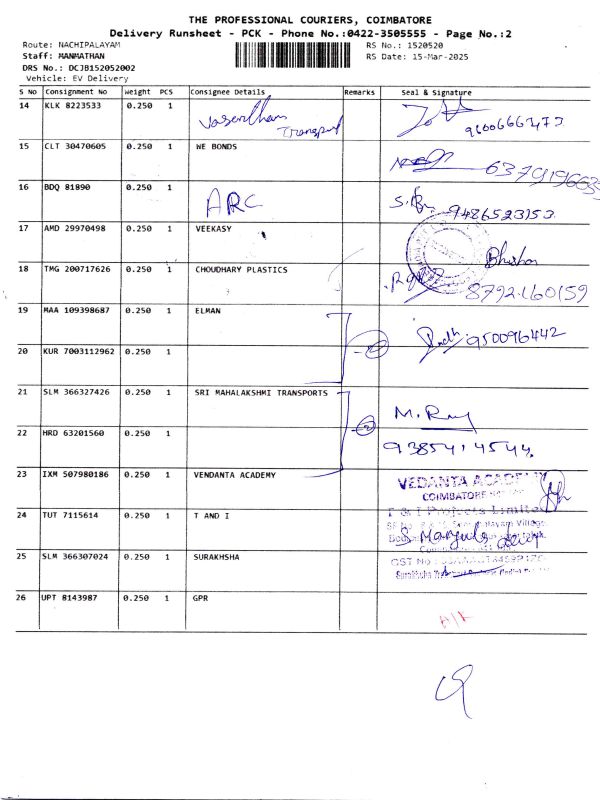 THE PROFESSIONAL COURIERS, COIMBATORE
Delivery Runsheet - PCK - Phone No.:0422-3505555 - Page No.:2
Route: NACHIPALAYAM RS No.: 1520520
Staff: MANMATHAN RS Date: 15-Mar-2025
DRS No.: DCJB152052002
Vehicle: EV Delivery
S No Consignment No Weight PCS Consignee Details Remarks Seal & Signature
14 KLK 8223533 0.250 1 Vasantham Transport
15 CLT 30470605 0.250 1 WE BONDS
16 BDQ 81890 0.250 1 ARC 9486523153
17 AMD 29970498 0.250 1 VEEKASY
18 TMG 200717626 0.250 1 CHOUDHARY PLASTICS 8792160159
19 MAA 109398687 0.250 1 ELMAN 950096442
20 KUR 7003112962 0.250 1
21 SLM 366327426 0.250 1 SRI MAHALAKSHMI TRANSPORTS M. Raj
22 HRD 63201560 0.250 1 9385414544
23 IXM 507980186 0.250 1 VENDANTA ACADEMY VEDANTA ACADEMY
COIMBATORE
24 TUT 7115614 0.250 1 T AND I T & I Projects Limited
25 SLM 366307024 0.250 1 SURAKHSHA
26 UPT 8143987 0.250 1 GPR